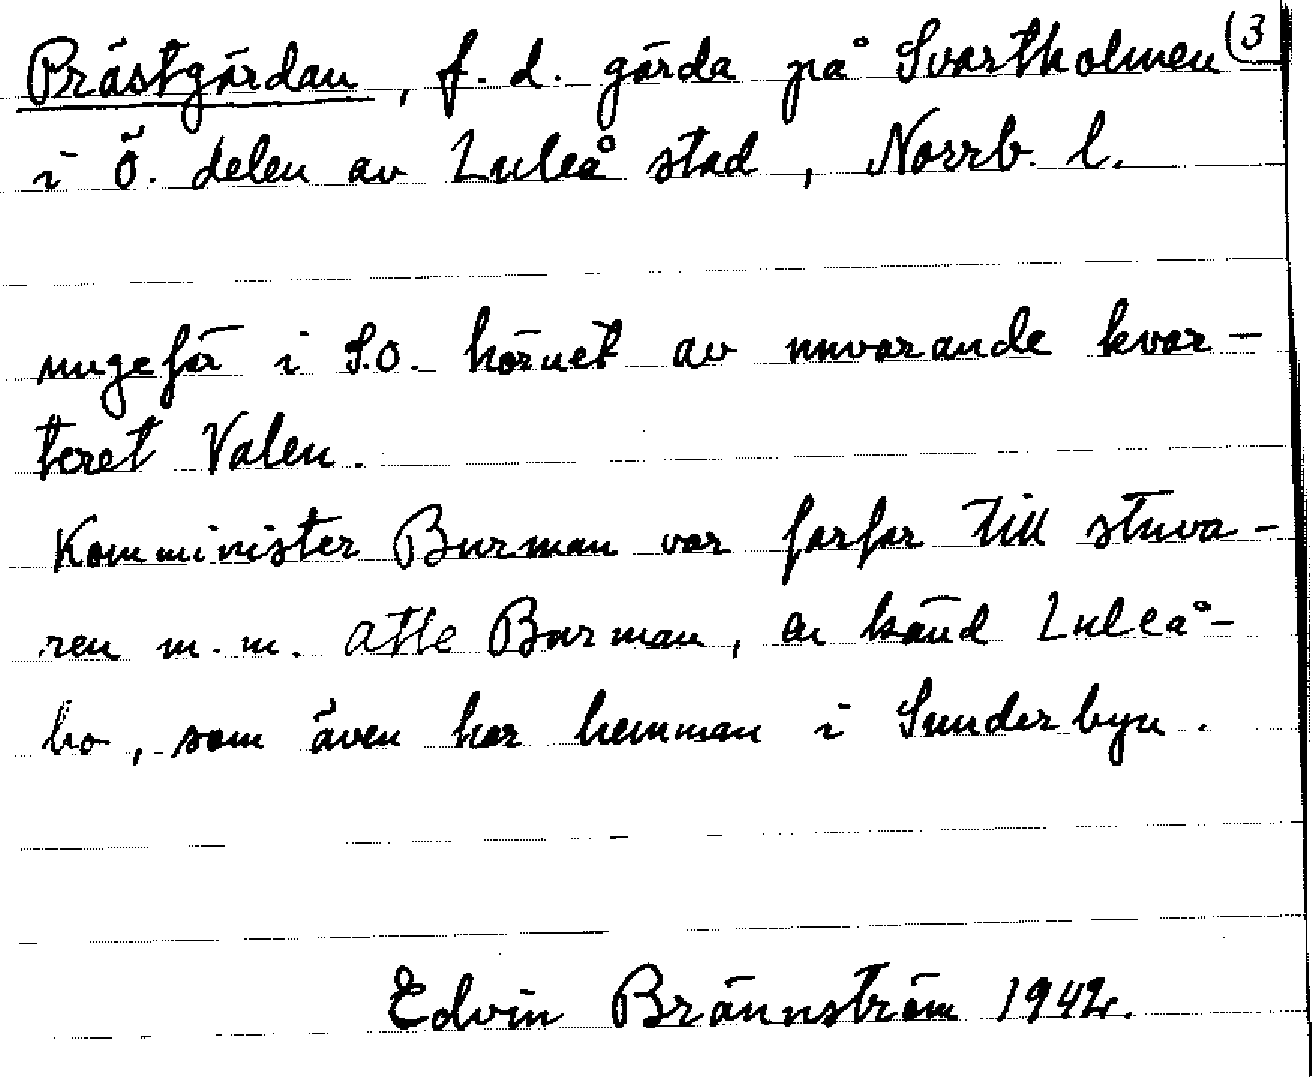 Prästgärdan, f. d. gärda på Svartholmen (3
i Ö. delen av Luleå stad, Norrb. l.
ungefär i S.O. hörnet av nuvarande kvar-
teret Valen.
Komminister Burman var farfar till stuva-
ren m. m. Atle Burman, en känd Luleå-
bo, som även har hemman i Sunderbyn.
Edvin Brännström 1942.